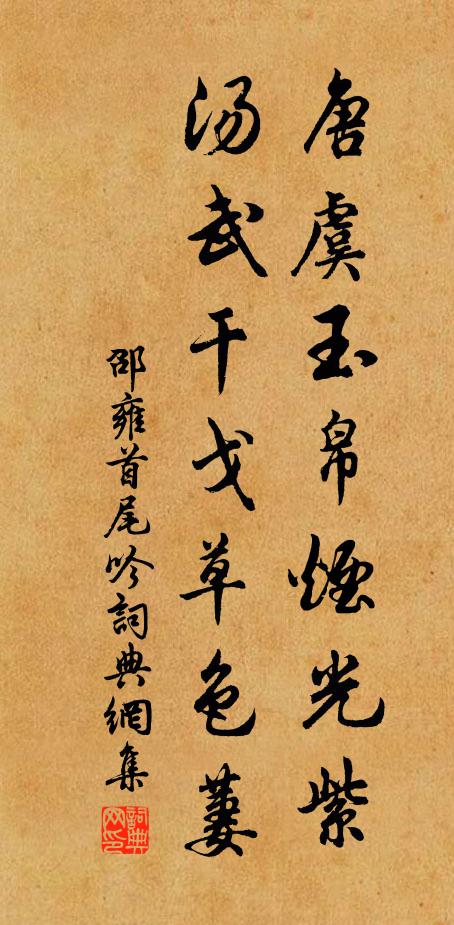 唐虞玉帛煙光紫
湯武干戈草色萋
邵雍首尾吟詞典網集
詞典网印